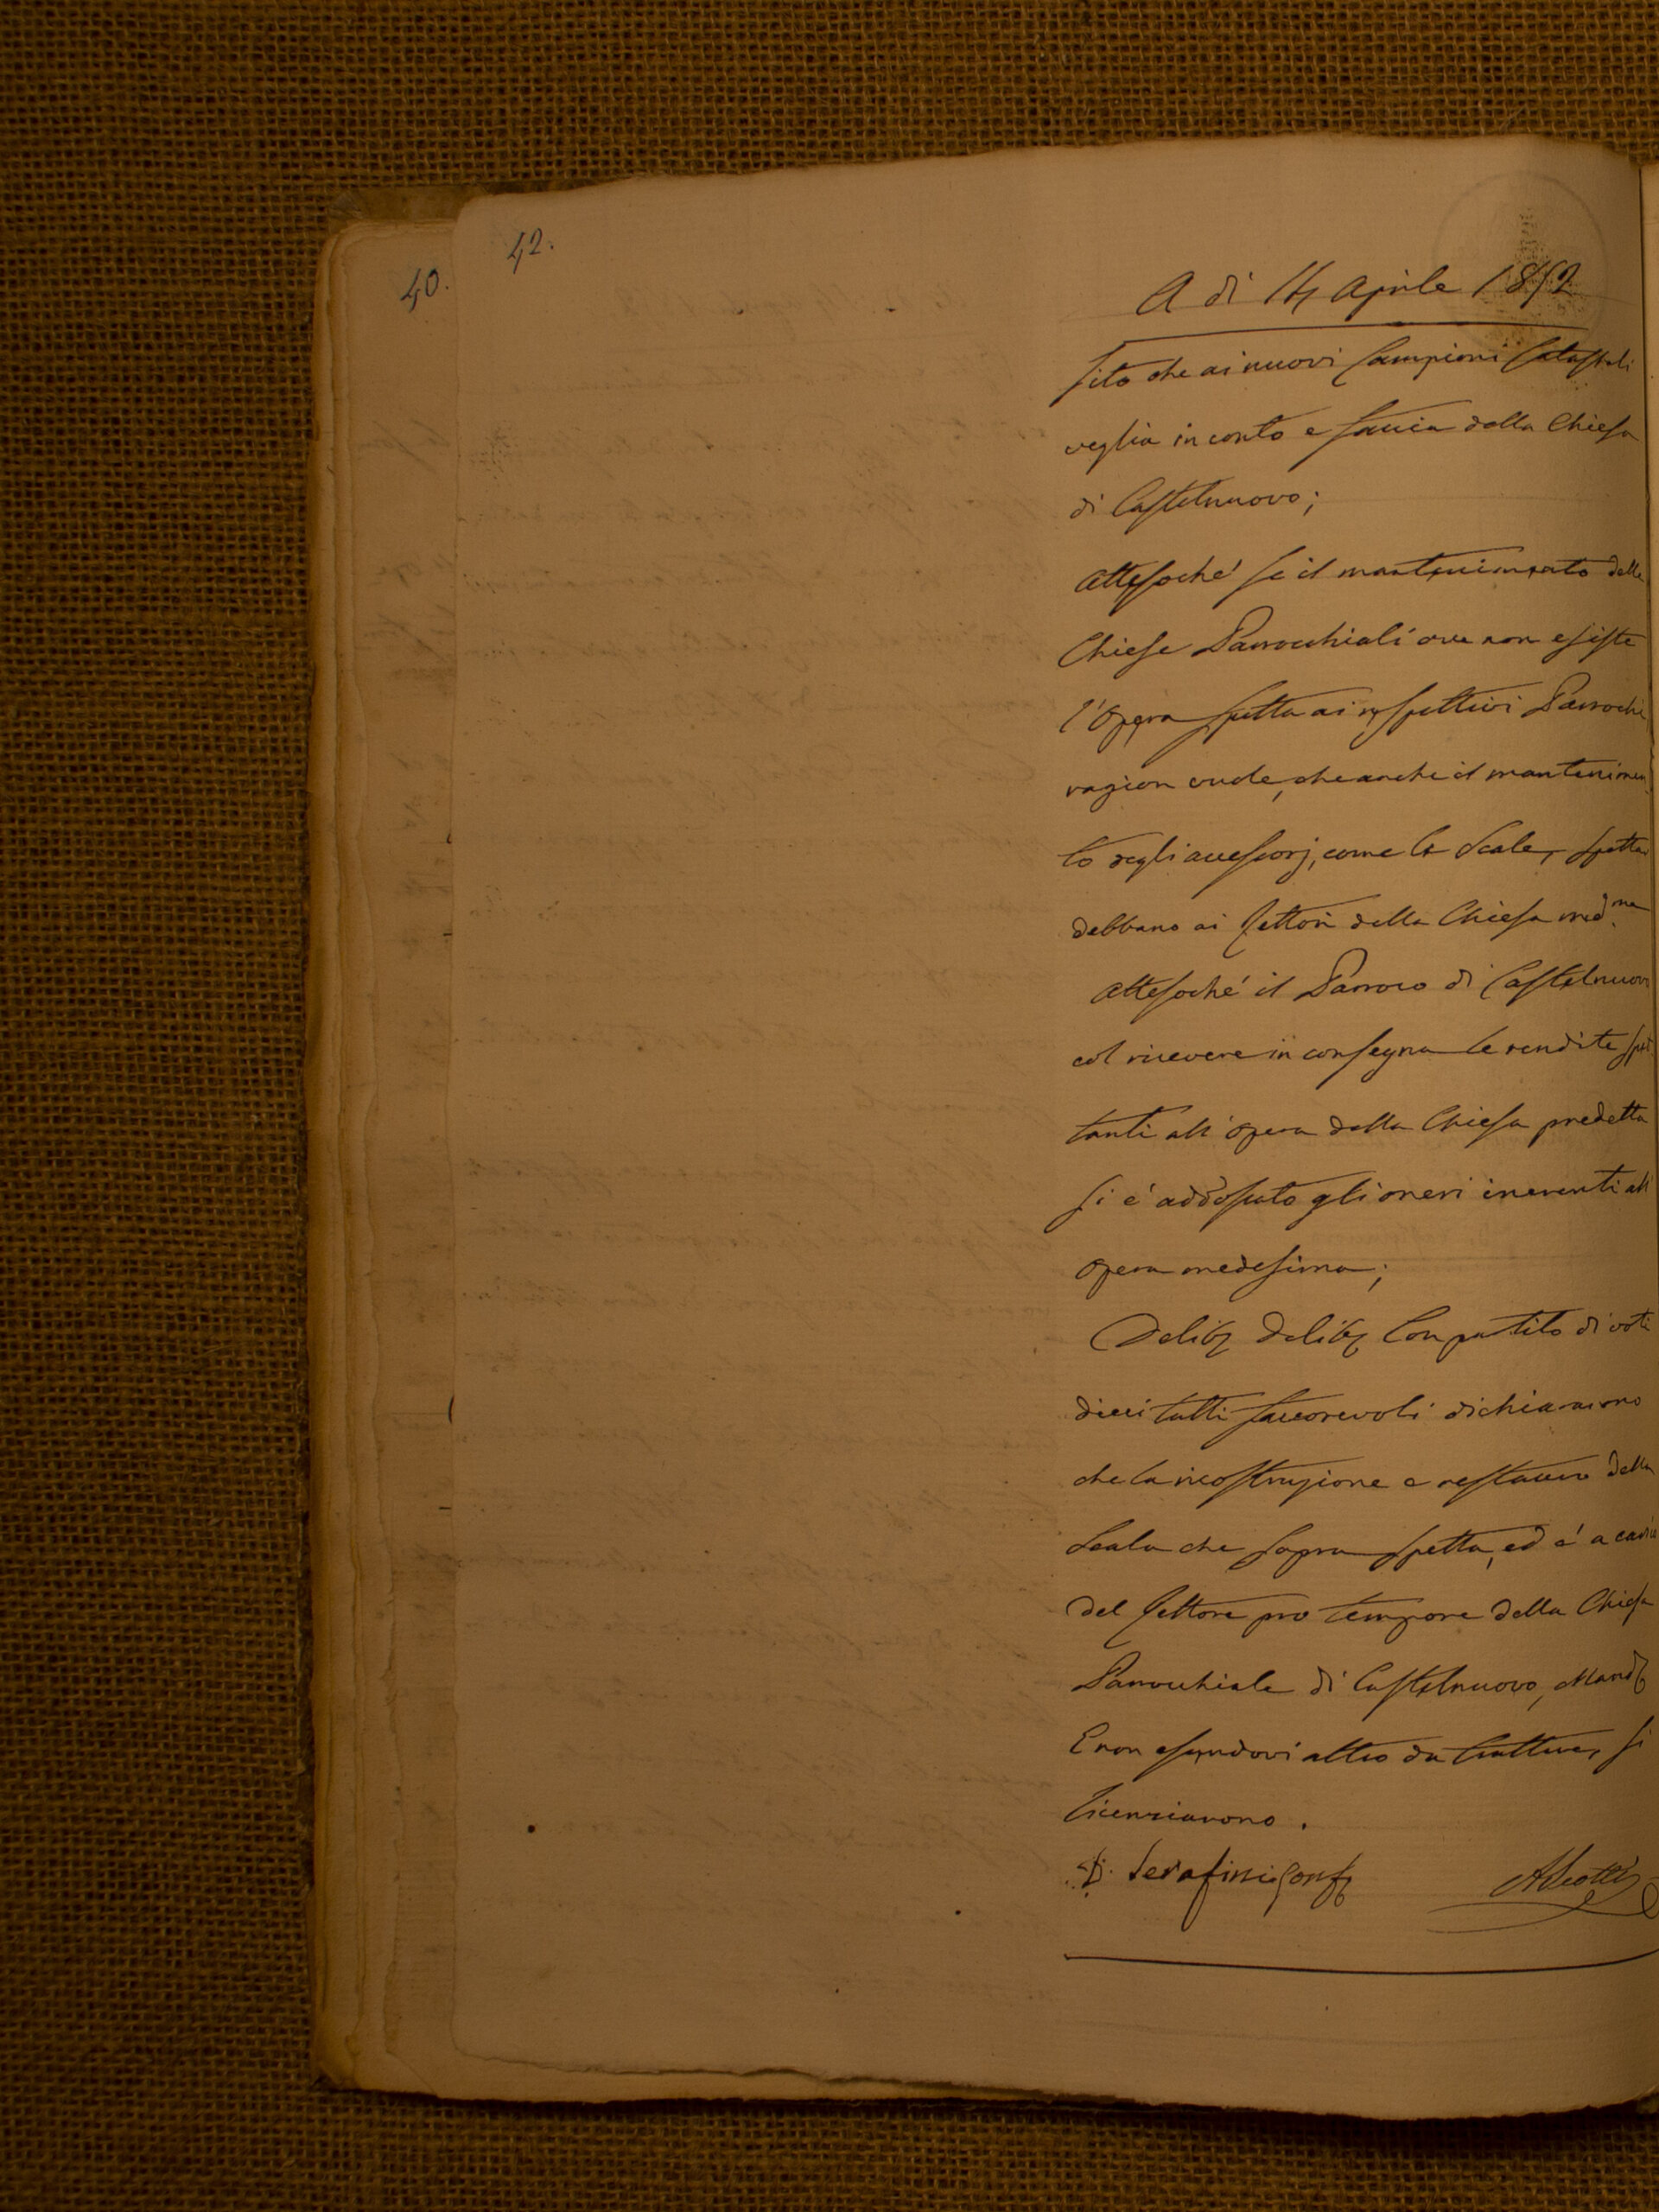 40.
42.
A dì 14 Aprile 1852
sito che ai nuovi Campioni Catastali
veglia in conto e faccia della Chiesa
di Castelnuovo;
Attesoché se il mantenimento delle
Chiese Parrocchiali ove non esiste
l'Opera spetta ai respettivi Parrochi
ragion vuole, che anche il mantenimen
to degli accessorj, come le Scale, spettar
debbano ai Rettori della Chiesa med.ma
Attesoché il Parroco di Castelnuovo
col ricevere in consegna le rendite spet
tanti all'opera della Chiesa predetta
si é addossato gli oneri inerenti all'
opera medesima;
Delib. Delib. Con partito di voti
dieci tutti favorevoli dichiararono
che la ricostruzione e restauro della
Scala che sopra spetta, ed é a carico
del Rettore pro tempore della Chiesa
Parrocchiale di Castelnuovo, Mand.
E non essendovi altro da trattare, si
licenziarono.
D. Serafini Gonf.